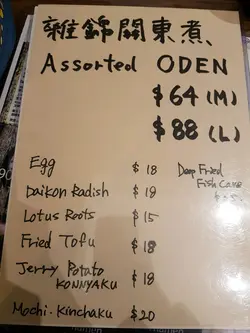 雜錦關東煮
Assorted ODEN
$64 (M)
$88 (L)
Egg $18
Daikon Radish $18
Lotus Roots $15
Fried Tofu $18
Jerry Potato
KONNYAKU $18
Mochi.Kinchaku $20
Deep Fried
Fish Cake